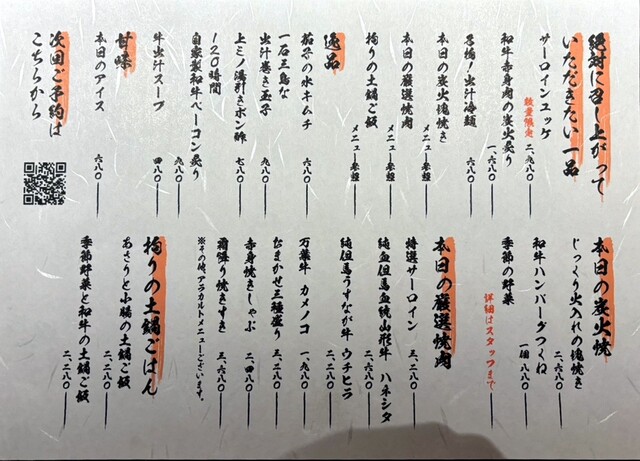 絶対に召し上がって
いただきたい一品
サーロインユッケ 数量限定 二、九八〇
和牛赤身肉の炭火炙り 一、六八〇
出汁冷麺 九八〇
本日の炭火塊焼き メニュー参照
本日の厳選焼肉 メニュー参照
拘りの土鍋ご飯 メニュー参照
逸品
茄子の水キムチ 六八〇
一石三鳥な
出汁巻き玉子 八八〇
上ミノ湯引きポン酢 七八〇
120時間
自家製和牛ベーコン炙り 九八〇
牛出汁スープ 四八〇
甘味
本日のアイス 六八〇
次回ご予約は
こちらから
本日の炭火焼
じっくり火入れの塊焼き 二、六八〇
和牛ハンバーグつくね 一個 八八〇
季節の野菜 詳細はスタッフまで
本日の厳選焼肉
特選サーロイン 三、二八〇
純血但馬血統山形牛 ハネシタ 二、六八〇
純但馬うすなが牛 ウチヒラ 二、二八〇
万葉牛 カメノコ 一、九八〇
おまかせ三種盛り 三、二八〇
赤身焼きしゃぶ 二、四八〇
霜降り焼きすき 三、六八〇
※その他、アラカルトメニューございます。
拘りの土鍋ごはん
あさりと小腸の土鍋ご飯 二、二八〇
季節野菜と和牛の土鍋ご飯 二、二八〇